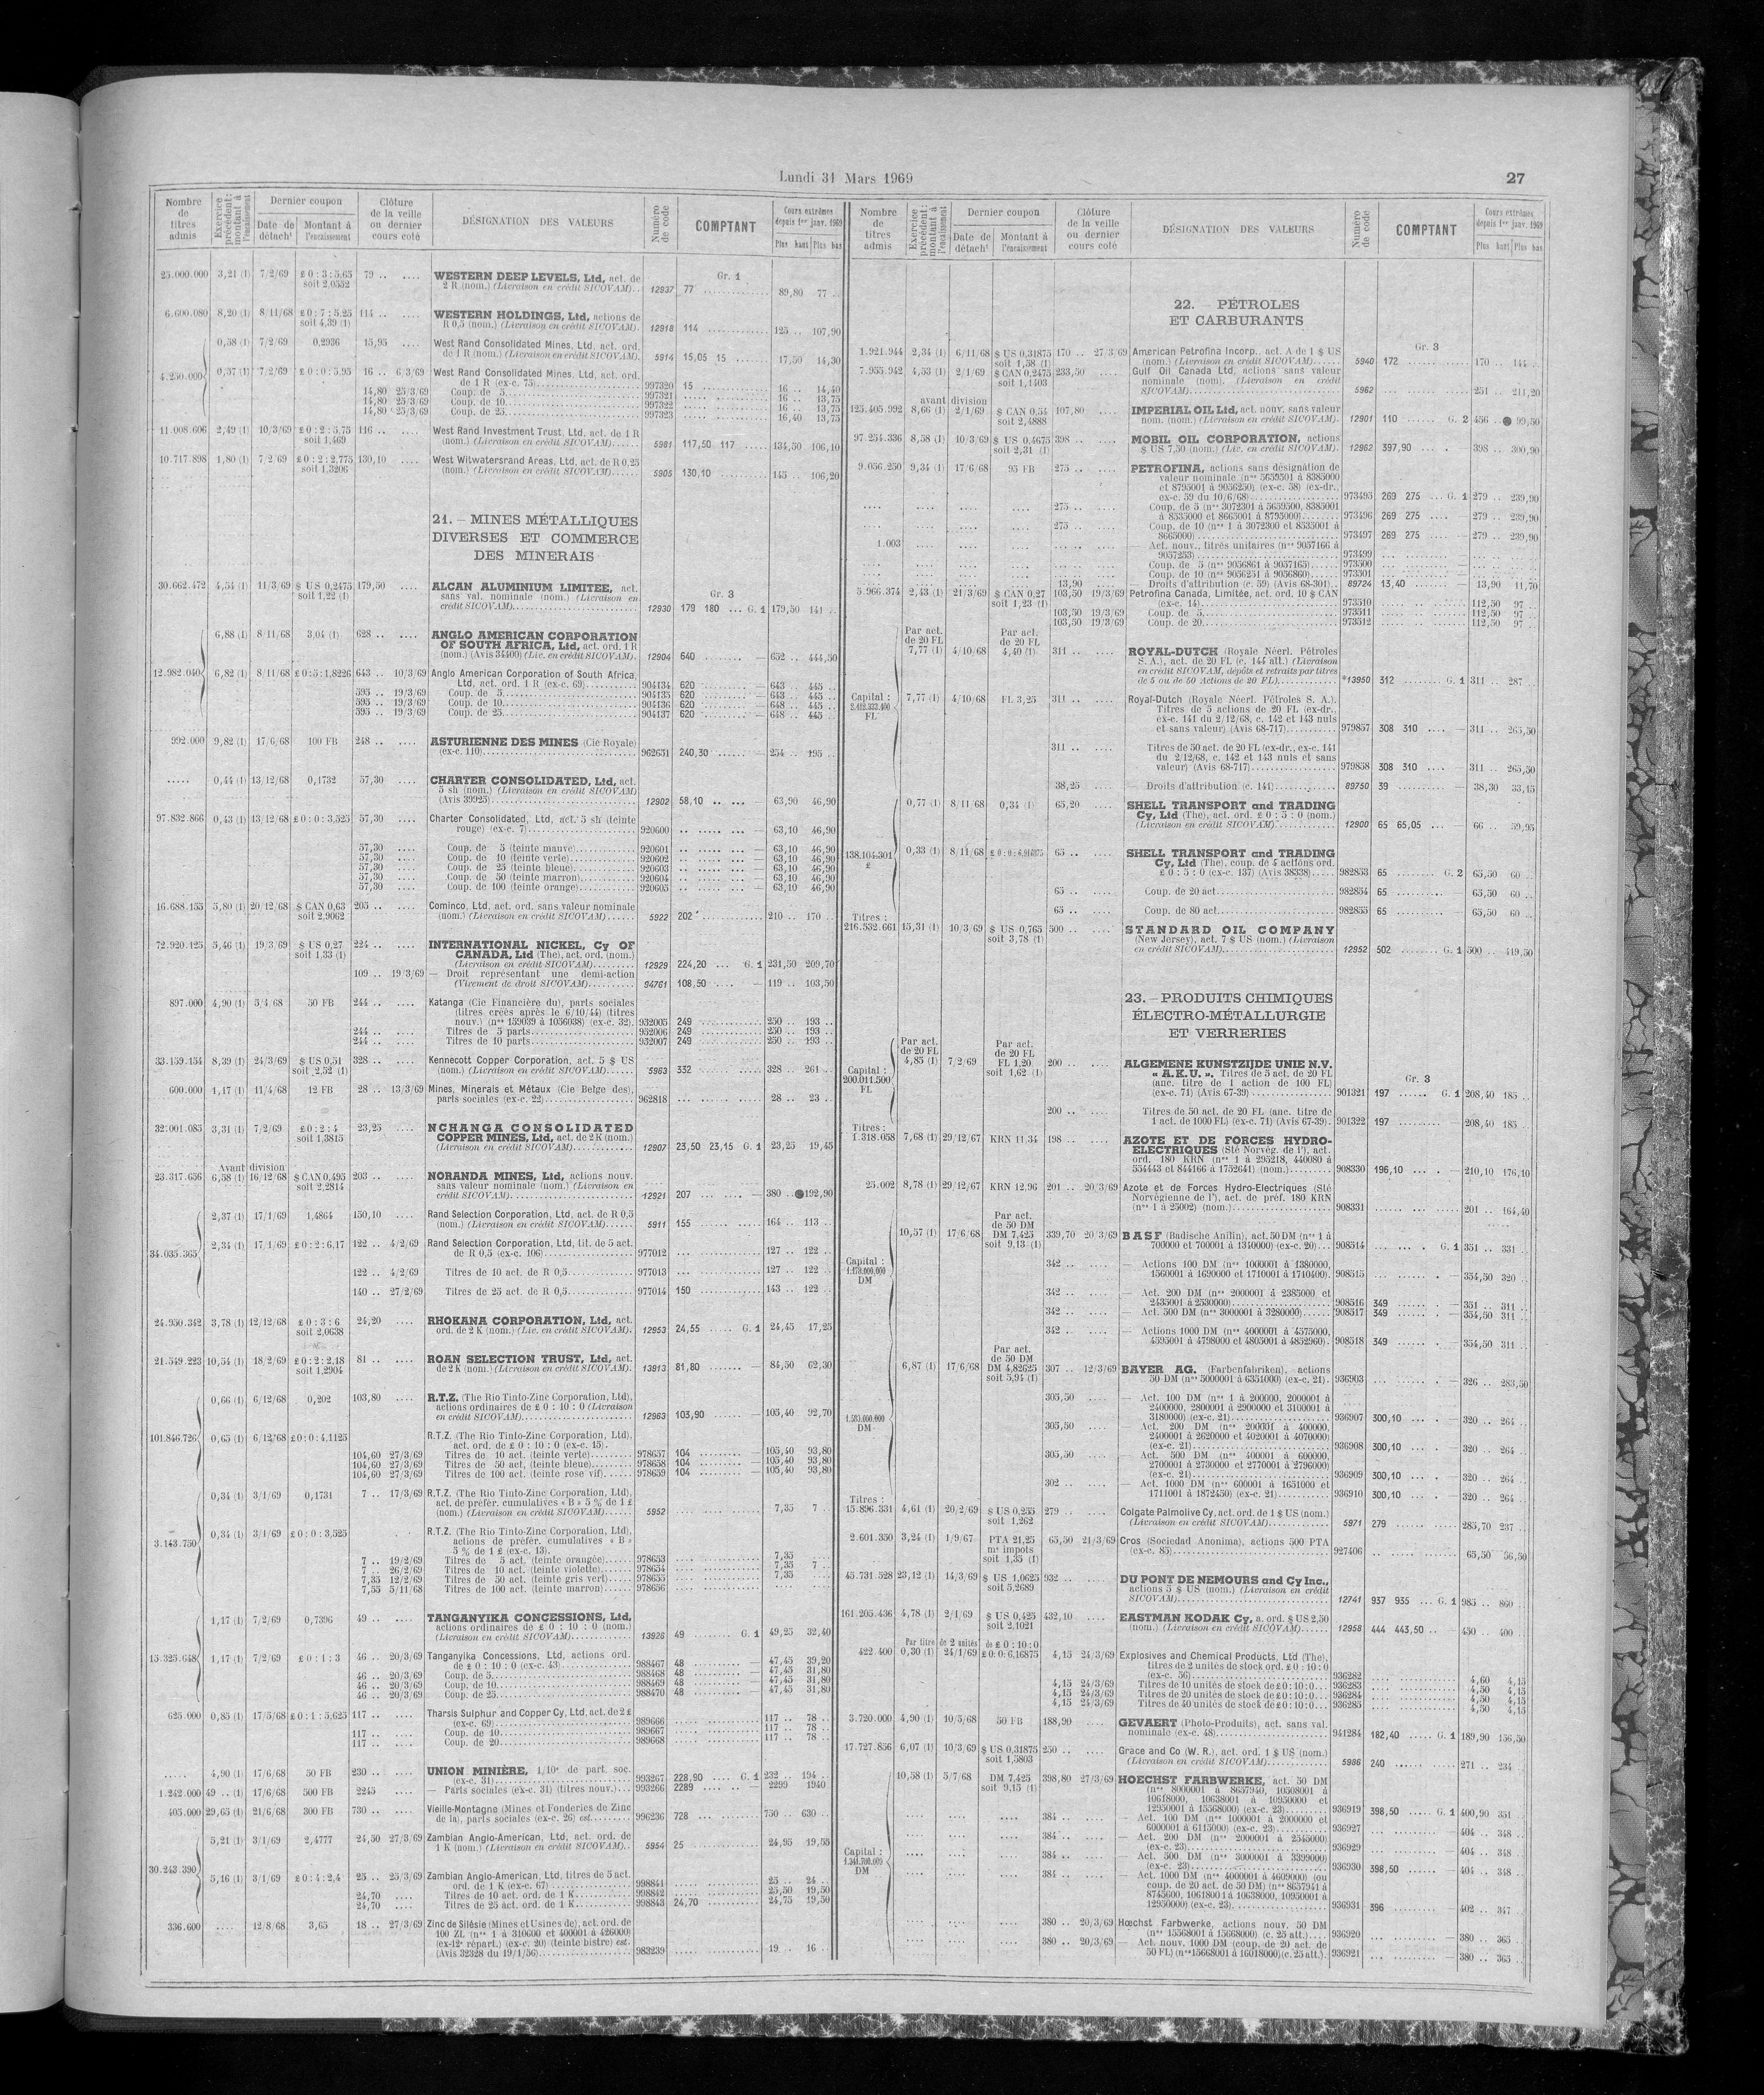 Lundi 31 Mars 1969
27
Nombre de titres admis
Exercice précédent: montant à l'encaissement
Dernier coupon
Date de détach.t
Montant à l'encaissement
Clôture de la veille ou dernier cours coté
DÉSIGNATION DES VALEURS
Numéro de code
COMPTANT
Cours extrêmes depuis 1er janv. 1969
Plus haut
Plus bas
Gr. 1
25.000.000 3,21 (1) 7/2/69 £ 0 : 3 : 5,65 79 .. .... WESTERN DEEP LEVELS, Ltd, act. de
soit 2,0552 2 R (nom.) (Livraison en crédit SICOVAM).. 12937 77 89,80 77 ..
6.600.080 8,20 (1) 8/11/68 £ 0 : 7 : 5,25 114 .. .... WESTERN HOLDINGS, Ltd, actions de
soit 4,39 (1) R 0,5 (nom.) (Livraison en crédit SICOVAM). 12918 114 125 .. 107,90
0,58 (1) 7/2/69 0,2936 15,95 .... West Rand Consolidated Mines, Ltd, act. ord.
de 1 R (nom.) (Livraison en crédit SICOVAM). 5914 15,05 15 17,50 14,30
4.250.000 0,57 (1) 7/2/69 £ 0 : 0 : 5,95 16 .. 6/3/69 West Rand Consolidated Mines, Ltd, act. ord.
de 1 R (ex-c. 75) 997320 15 16 .. 14,40
14,80 25/3/69 Coup. de 5 997321 16 .. 13,75
14,80 25/3/69 Coup. de 10 997322 16 .. 13,75
14,80 25/3/69 Coup. de 25 997323 16,40 13,75
11.008.606 2,49 (1) 10/3/69 £ 0 : 2 : 5,75 116 .. .... West Rand Investment Trust, Ltd, act. de 1 R
soit 1,469 (nom.) (Livraison en crédit SICOVAM) 5981 117,50 117 134,50 106,10
10.717.898 1,80 (1) 7/2/69 £ 0 : 2 : 2,775 130,10 .... West Witwatersrand Areas, Ltd, act. de R 0,25
soit 1,3206 (nom.) (Livraison en crédit SICOVAM) 5905 130,10 145 .. 106,20
21. – MINES MÉTALLIQUES
DIVERSES ET COMMERCE
DES MINERAIS
Gr. 3
30.662.472 4,54 (1) 11/3/69 $ US 0,2475 179,50 .... ALCAN ALUMINIUM LIMITEE, act.
soit 1,22 (1) sans val. nominale (nom.) (Livraison en
crédit SICOVAM) 12930 179 180 ... G. 1 179,50 141 ..
6,88 (1) 8/11/68 3,04 (1) 628 .. .... ANGLO AMERICAN CORPORATION
OF SOUTH AFRICA, Ltd, act. ord. 1 R
(nom.) (Avis 34400) (Liv. en crédit SICOVAM). 12904 640 652 .. 444,50
12.982.040 6,82 (1) 8/11/68 £ 0 : 5 : 1,8226 643 .. 10/3/69 Anglo American Corporation of South Africa,
Ltd, act. ord. 1 R (ex-c. 69) 904134 620 643 .. 445 ..
595 .. 19/3/69 Coup. de 5 904135 620 643 .. 445 ..
595 .. 19/3/69 Coup. de 10 904136 620 648 .. 445 ..
595 .. 19/3/69 Coup. de 25 904137 620 648 .. 445 ..
992.000 9,82 (1) 17/6/68 100 FB 248 .. .... ASTURIENNE DES MINES (Cie Royale)
(ex-c. 110) 962651 240,30 254 .. 195 ..
..... 0,44 (1) 13/12/68 0,1732 57,30 .... CHARTER CONSOLIDATED, Ltd, act.
5 sh (nom.) (Livraison en crédit SICOVAM)
(Avis 39925) 12902 58,10 63,90 46,90
97.832.866 0,43 (1) 13/12/68 £ 0 : 0 : 3,525 57,30 .... Charter Consolidated, Ltd, act. 5 sh (teinte
rouge) (ex-c. 7) 920600 63,10 46,90
57,30 Coup. de 5 (teinte mauve) 920601 63,10 46,90
57,30 Coup. de 10 (teinte verte) 920602 63,10 46,90
57,30 Coup. de 25 (teinte bleue) 920603 63,10 46,90
57,30 Coup. de 50 (teinte marron) 920604 63,10 46,90
57,30 Coup. de 100 (teinte orange) 920605 63,10 46,90
16.688.155 5,80 (1) 20/12/68 $ CAN 0,63 205 .. .... Cominco, Ltd, act. ord. sans valeur nominale
soit 2,9062 (nom.) (Livraison en crédit SICOVAM) 5922 202 210 .. 170 ..
72.920.125 5,46 (1) 19/3/69 $ US 0,27 224 .. .... INTERNATIONAL NICKEL, Cy OF
soit 1,33 (1) CANADA, Ltd (The), act. ord. (nom.)
(Livraison en crédit SICOVAM) 12929 224,20 ... G. 1 231,50 209,70
109 .. 19/3/69 — Droit représentant une demi-action
(Virement de droit SICOVAM) 94761 108,50 119 .. 103,50
897.000 4,90 (1) 5/4/68 50 FB 244 .. .... Katanga (Cie Financière du), parts sociales
(titres créés après le 6/10/44) (titres
nouv.) (nos 159039 à 1056038) (ex-c. 32). 952005 249 250 .. 193 ..
244 .. Titres de 5 parts 952006 249 250 .. 193 ..
244 .. Titres de 10 parts 952007 249 250 .. 193 ..
33.159.154 8,39 (1) 24/3/69 $ US 0,51 328 .. .... Kennecott Copper Corporation, act. 5 $ US
soit 2,52 (1) (nom.) (Livraison en crédit SICOVAM) 5963 332 328 .. 261 ..
600.000 1,17 (1) 11/4/68 12 FB 28 .. 13/3/69 Mines, Minerais et Métaux (Cie Belge des),
parts sociales (ex-c. 22) 962818 28 .. 23 ..
32.001.085 3,31 (1) 7/2/69 £ 0 : 2 : 4 23,25 NCHANGA CONSOLIDATED
soit 1,3815 COPPER MINES, Ltd, act. de 2 K (nom.)
(Livraison en crédit SICOVAM) 12907 23,50 23,15 G. 1 23,25 19,45
Avant division
23.317.656 6,58 (1) 16/12/68 $ CAN 0,495 203 .. .... NORANDA MINES, Ltd, actions nouv.
soit 2,2814 sans valeur nominale (nom.) (Livraison en
crédit SICOVAM) 12921 207 380 .. ●192,90
2,37 (1) 17/1/69 1,4864 150,10 .... Rand Selection Corporation, Ltd, act. de R 0,5
(nom.) (Livraison en crédit SICOVAM) 5911 155 164 .. 113 ..
34.035.365 2,34 (1) 17/1/69 £ 0 : 2 : 6,17 122 .. 4/2/69 Rand Selection Corporation, Ltd, tit. de 5 act.
de R 0,5 (ex-c. 106) 977012 127 .. 122 ..
122 .. 4/2/69 Titres de 10 act. de R 0,5 977013 127 .. 122 ..
140 .. 27/2/69 Titres de 25 act. de R 0,5 977014 150 143 .. 122 ..
24.950.342 3,78 (1) 12/12/68 £ 0 : 3 : 6 24,20 .... RHOKANA CORPORATION, Ltd, act.
soit 2,0638 ord. de 2 K (nom.) (Liv. en crédit SICOVAM). 12953 24,55 ..... G. 1 24,45 17,25
21.549.223 10,54 (1) 18/2/69 £ 0 : 2 : 2,18 81 .. .... ROAN SELECTION TRUST, Ltd, act.
soit 1,2904 de 2 K (nom.) (Livraison en crédit SICOVAM). 13913 81,80 84,50 62,30
0,66 (1) 6/12/68 0,202 103,80 .... R.T.Z. (The Rio Tinto-Zinc Corporation, Ltd),
actions ordinaires de £ 0 : 10 : 0 (Livraison
en crédit SICOVAM) 12963 103,90 105,40 92,70
101.846.726 0,65 (1) 6/12/68 £ 0 : 0 : 4,1125 R.T.Z. (The Rio Tinto-Zinc Corporation, Ltd),
act. ord. de £ 0 : 10 : 0 (ex-c. 15).
104,60 27/3/69 Titres de 10 act. (teinte verte) 978657 104 105,40 93,80
104,60 27/3/69 Titres de 50 act. (teinte bleue) 978658 104 105,40 93,80
104,60 27/3/69 Titres de 100 act. (teinte rose vif) 978659 104 105,40 93,80
0,34 (1) 3/1/69 0,1731 7 .. 17/3/69 R.T.Z. (The Rio Tinto-Zinc Corporation, Ltd),
act. de préfér. cumulatives « B » 5 % de 1 £
(nom.) (Livraison en crédit SICOVAM) 5952 7,35 7 ..
3.143.750 0,34 (1) 3/1/69 £ 0 : 0 : 3,525 R.T.Z. (The Rio Tinto-Zinc Corporation, Ltd),
actions de préfér. cumulatives « B »
5 % de 1 £ (ex-c. 13).
7 .. 19/2/69 Titres de 5 act. (teinte orangée) 978653 7,35
7 .. 26/2/69 Titres de 10 act. (teinte violette) 978654 7,35 7 ..
7,35 12/2/69 Titres de 50 act. (teinte gris vert) 978655 7,35
7,55 5/11/68 Titres de 100 act. (teinte marron) 978656
1,17 (1) 7/2/69 0,7396 49 .. .... TANGANYIKA CONCESSIONS, Ltd,
actions ordinaires de £ 0 : 10 : 0 (nom.)
(Livraison en crédit SICOVAM) 13926 49 G. 1 49,25 32,40
15.325.648 1,17 (1) 7/2/69 £ 0 : 1 : 3 46 .. 20/3/69 Tanganyika Concessions, Ltd, actions ord.
de £ 0 : 10 : 0 (ex-c. 43) 988467 48 47,45 39,20
46 .. 20/3/69 Coup. de 5 988468 48 47,45 31,80
46 .. 20/3/69 Coup. de 10 988469 48 47,45 31,80
46 .. 20/3/69 Coup. de 25 988470 48 47,45 31,80
625.000 0,85 (1) 17/5/68 £ 0 : 1 : 5,625 117 .. .... Tharsis Sulphur and Copper Cy, Ltd, act. de 2 £
(ex-c. 69) 989666 117 .. 78 ..
117 .. Coup. de 10 989667 117 .. 78 ..
117 .. Coup. de 20 989668 117 .. 78 ..
..... 4,90 (1) 17/6/68 50 FB 230 .. .... UNION MINIÈRE, 1/10e de part. soc.
(ex-c. 31) 993267 228,90 .... G. 1 232 .. 194 ..
1.242.000 49 .. (1) 17/6/68 500 FB 2245 — Parts sociales (ex-c. 31) (titres nouv.) 993266 2289 2299 1940
405.000 29,65 (1) 21/6/68 300 FB 730 .. .... Vieille-Montagne (Mines et Fonderies de Zinc
de la), parts sociales (ex-c. 26) est. 996236 728 750 .. 630 ..
5,21 (1) 3/1/69 2,4777 24,50 27/3/69 Zambian Anglo-American, Ltd, act. ord. de
1 K (nom.) (Livraison en crédit SICOVAM) 5954 25 24,95 19,55
30.243.390 5,16 (1) 3/1/69 £ 0 : 4 : 2,4 25 .. 25/3/69 Zambian Anglo-American, Ltd, titres de 5 act.
ord. de 1 K (ex-c. 67) 998841 25 .. 24 ..
24,70 Titres de 10 act. ord. de 1 K 998842 25,50 19,50
24,70 Titres de 25 act. ord. de 1 K 998843 24,70 24,75 19,50
336.600 .... 12/8/68 3,65 18 .. 27/3/69 Zinc de Silésie (Mines et Usines de), act. ord. de
100 ZL (nos 1 à 310600 et 400001 à 426000)
(ex-12e répart.) (ex-c. 20) (teinte bistre) est.
(Avis 32328 du 19/1/56) 983239 19 .. 16 ..
Nombre de titres admis
Exercice précédent: montant à l'encaissement
Dernier coupon
Date de détach.t
Montant à l'encaissement
Clôture de la veille ou dernier cours coté
DÉSIGNATION DES VALEURS
Numéro de code
COMPTANT
Cours extrêmes depuis 1er janv. 1969
Plus haut
Plus bas
22. — PÉTROLES
ET CARBURANTS
Gr. 3
1.921.944 2,34 (1) 6/11/68 $ US 0,31875 170 .. 27/3/69 American Petrofina Incorp., act. A de 1 $ US
soit 1,58 (1) (nom.) (Livraison en crédit SICOVAM) 5940 172 170 .. 144 ..
7.955.942 4,53 (1) 2/1/69 $ CAN 0,2475 233,50 Gulf Oil Canada Ltd, actions sans valeur
soit 1,1403 nominale (nom). (Livraison en crédit
SICOVAM) 5962 251 .. 211,20
avant division
125.405.992 8,66 (1) 2/1/69 $ CAN 0,54 107,80 .... IMPERIAL OIL Ltd, act. nouv. sans valeur
soit 2,4888 nom. (nom.) (Livraison en crédit SICOVAM). 12901 110 G. 2 456 .. ● 99,50
97.254.336 8,58 (1) 10/3/69 $ US 0,4675 398 .. .... MOBIL OIL CORPORATION, actions
soit 2,31 (1) $ US 7,50 (nom.) (Liv. en crédit SICOVAM). 12962 397,90 398 .. 300,90
9.056.250 9,34 (1) 17/6/68 95 FB 275 .. .... PETROFINA, actions sans désignation de
valeur nominale (nos 5659501 à 8385000
et 8795001 à 9056250) (ex-c. 58) (ex-dr.,
ex-c. 59 du 10/6/68) 973495 269 275 ... G. 1 279 .. 239,90
275 .. Coup. de 5 (nos 3072301 à 5659500, 8385001
à 8535000 et 8665001 à 8795000) 973496 269 275 279 .. 239,90
275 .. Coup. de 10 (nos 1 à 3072300 et 8535001 à
8665000) 973497 269 275 279 .. 239,90
1.003 — Act. nouv., titres unitaires (nos 9057166 à
9057253) 973499
Coup. de 5 (nos 9056861 à 9057165) 973500
Coup. de 10 (nos 9056251 à 9056860) 973501
13,90 — Droits d'attribution (c. 59) (Avis 68-301) 89724 13,40 13,90 11,70
5.966.374 2,43 (1) 21/3/69 $ CAN 0,27 103,50 19/3/69 Petrofina Canada, Limitée, act. ord. 10 $ CAN
soit 1,23 (1) (ex-c. 14) 973510 112,50 97 ..
103,50 19/3/69 Coup. de 5 973511 112,50 97 ..
103,50 19/3/69 Coup. de 20 973512 112,50 97 ..
Par act. de 20 FL
Par act. de 20 FL
7,77 (1) 4/10/68 4,40 (1) 311 .. .... ROYAL-DUTCH (Royale Néerl. Pétroles
S. A.), act. de 20 FL (c. 144 att.) (Livraison
en crédit SICOVAM, dépôts et retraits par titres
de 5 ou de 50 Actions de 20 FL) *13950 312 G. 1 311 .. 287 ..
Capital : 2.412.333.400 FL
7,77 (1) 4/10/68 FL 3,25 311 .. Royal-Dutch (Royale Néerl. Pétroles S. A.).
Titres de 5 actions de 20 FL (ex-dr.,
ex-c. 141 du 2/12/68, c. 142 et 143 nuls
et sans valeur) (Avis 68-717) 979857 308 310 311 .. 265,50
311 .. Titres de 50 act. de 20 FL (ex-dr., ex-c. 141
du 2/12/68, c. 142 et 143 nuls et sans
valeur) (Avis 68-717) 979858 308 310 311 .. 265,50
38,25 — Droits d'attribution (c. 141) 89750 39 38,30 33,15
0,77 (1) 8/11/68 0,34 (1) 65,20 SHELL TRANSPORT and TRADING
Cy, Ltd (The), act. ord. £ 0 : 5 : 0 (nom.)
(Livraison en crédit SICOVAM) 12900 65 65,05 66 .. 59,95
138.104.301 £ 0,33 (1) 8/11/68 65 .. .... SHELL TRANSPORT and TRADING
Cy, Ltd (The), coup. de 4 actions ord.
£ 0 : 5 : 0 (ex-c. 137) (Avis 38338) 982853 65 G. 2 65,50 60 ..
65 .. Coup. de 20 act. 982854 65 65,50 60 ..
65 .. Coup. de 80 act. 982855 65 65,50 60 ..
Titres :
216.532.661 15,31 (1) 10/3/69 $ US 0,765 500 .. .... STANDARD OIL COMPANY
soit 3,78 (1) (New Jersey), act. 7 $ US (nom.) (Livraison
en crédit SICOVAM) 12952 502 G. 1 500 .. 419,50
23. – PRODUITS CHIMIQUES
ÉLECTRO-MÉTALLURGIE
ET VERRERIES
Gr. 3
Par act. de 20 FL
Par act. de 20 FL
Capital : 200.011.500 FL
4,85 (1) 7/2/69 FL 1,20 200 .. .... ALGEMENE KUNSTZIJDE UNIE N.V.
soit 1,62 (1) « A.K.U. ». Titres de 5 act. de 20 FL
(anc. titre de 1 action de 100 FL)
(ex-c. 71) (Avis 67-39) 901321 197 G. 1 208,40 185 ..
200 .. Titres de 50 act. de 20 FL (anc. titre de
1 act. de 1000 FL) (ex-c. 71) (Avis 67-39). 901322 197 208,40 185 ..
Titres :
1.318.058 7,68 (1) 29/12/67 KRN 11.34 198 .. .... AZOTE ET DE FORCES HYDRO-
ELECTRIQUES (Sté Norvég. de l'), act.
ord. 180 KRN (nos 1 à 295218, 440080 à
554443 et 844166 à 1752641) (nom.) 908330 196,10 210,10 176,10
25.002 8,78 (1) 29/12/67 KRN 12.96 201 .. 20/3/69 Azote et de Forces Hydro-Electriques (Sté
Norvégienne de l'), act. de préf. 180 KRN
(nos 1 à 25002) (nom.) 908331 201 .. 164,40
Par act. de 50 DM
10,57 (1) 17/6/68 DM 7,425 339,70 20/3/69 BASF (Badische Anilin), act. 50 DM (nos 1 à
soit 9,13 (1) 700000 et 700001 à 1340000) (ex-c. 20) 908514 G. 1 351 .. 331 ..
Capital : 1.178.000.000 DM
342 .. — Actions 100 DM (nos 1000001 à 1380000,
1560001 à 1690000 et 1710001 à 1710400). 908515 354,50 320 ..
342 .. — Act. 200 DM (nos 2000001 à 2385000 et
2435001 à 2530000) 908516 349 351 .. 311 ..
342 .. — Act. 500 DM (nos 3000001 à 3280000) 908517 349 354,50 311 ..
342 .. — Actions 1000 DM (nos 4000001 à 4575000,
4595001 à 4798000 et 4805001 à 4852960). 908518 349 354,50 311 ..
Par act. de 50 DM
6,87 (1) 17/6/68 DM 4,82625 307 .. 12/3/69 BAYER AG. (Farbenfabriken), actions
soit 5,94 (1) 50 DM (nos 5000001 à 6351000) (ex-c. 21). 936903 326 .. 283,50
1.530.000.000 DM
305,50 — Act. 100 DM (nos 1 à 200000, 2000001 à
2400000, 2800001 à 2900000 et 3100001 à
3180000) (ex-c. 21) 936907 300,10 320 .. 264 ..
305,50 — Act. 200 DM (nos 200001 à 400000,
2400001 à 2620000 et 4020001 à 4070000)
(ex-c. 21) 936908 300,10 320 .. 264 ..
305,50 — Act. 500 DM (nos 400001 à 600000,
2700001 à 2730000 et 2770001 à 2796000)
(ex-c. 21) 936909 300,10 320 .. 264 ..
302 .. — Act. 1000 DM (nos 600001 à 1651000 et
1711001 à 1872450) (ex-c. 21) 936910 300,10 320 .. 264 ..
Titres :
15.896.331 4,61 (1) 20/2/69 $ US 0,255 279 .. .... Colgate Palmolive Cy, act. ord. de 1 $ US (nom.)
soit 1,262 (Livraison en crédit SICOVAM) 5971 279 285,70 237 ..
2.601.350 3,24 (1) 1/9/67 PTA 21,25 65,50 21/3/69 Cros (Sociedad Anonima), actions 500 PTA
ms impots
soit 1,55 (1) (ex-c. 85) 927406 65,50 56,50
45.731.528 23,12 (1) 14/3/69 $ US 1,0625 932 .. .... DU PONT DE NEMOURS and Cy Inc.,
soit 5,2689 actions 5 $ US (nom.) (Livraison en crédit
SICOVAM) 12741 937 935 G. 1 985 .. 860 ..
161.205.436 4,78 (1) 2/1/69 $ US 0,425 432,10 .... EASTMAN KODAK Cy, a. ord. $ US 2,50
soit 2,1021 (nom.) (Livraison en crédit SICOVAM) 12958 444 443,50 450 .. 400 ..
Par titre de 2 unités de £ 0 : 10 : 0
422.400 0,30 (1) 24/1/69 £ 0 : 0 : 6,16875 4,15 24/3/69 Explosives and Chemical Products, Ltd (The),
titres de 2 unités de stock ord. £ 0 : 10 : 0
(ex-c. 56) 936282 4,60 4,15
4,15 24/3/69 Titres de 10 unités de stock de £ 0 : 10 : 0 936283 4,50 4,15
4,15 24/3/69 Titres de 20 unités de stock de £ 0 : 10 : 0 936284 4,50 4,15
4,15 24/3/69 Titres de 40 unités de stock de £ 0 : 10 : 0 936285 4,50 4,15
3.720.000 4,90 (1) 10/5/68 50 FB 188,90 GEVAERT (Photo-Produits), act. sans val.
nominale (ex-c. 48) 941284 182,40 G. 1 189,90 156,50
17.727.856 6,07 (1) 10/3/69 $ US 0,31875 250 .. .... Grace and Co (W. R.), act. ord. 1 $ US (nom.)
soit 1,5803 (Livraison en crédit SICOVAM) 5986 240 271 .. 234 ..
10,58 (1) 5/7/68 DM 7,425 398,80 27/3/69 HOECHST FARBWERKE, act. 50 DM
soit 9,15 (1) (nos 8000001 à 8657940, 10508001 à
10618000, 10638001 à 10950000 et
12950001 à 15568000) (ex-c. 23) 936919 398,50 G. 1 400,90 351 ..
384 .. — Act. 100 DM (nos 1000001 à 2000000 et
6000001 à 6115000) (ex-c. 23) 936927 404 .. 348 ..
384 .. — Act. 200 DM (nos 2000001 à 2545000)
(ex-c. 23) 936929 404 .. 348 ..
Capital : DM
384 .. — Act. 500 DM (nos 3000001 à 3399000)
(ex-c. 23) 936930 398,50 404 .. 348 ..
384 .. — Act. 1000 DM (nos 4000001 à 4609000) (ou
coup. de 20 act. de 50 DM) (nos 8657941 à
8745600, 10618001 à 10638000, 10950001 à
12950000) (ex-c. 23) 936931 396 402 .. 347 ..
380 .. 20/3/69 Hœchst Farbwerke, actions nouv. 50 DM
(nos 15568001 à 15668000) (c. 25 att.) 936920 380 .. 365 ..
380 .. 20/3/69 — Act. nouv. 1000 DM (coup. de 20 act. de
50 FL) (nos 15668001 à 16018000) (c. 25 att.). 936921 380 .. 365 ..